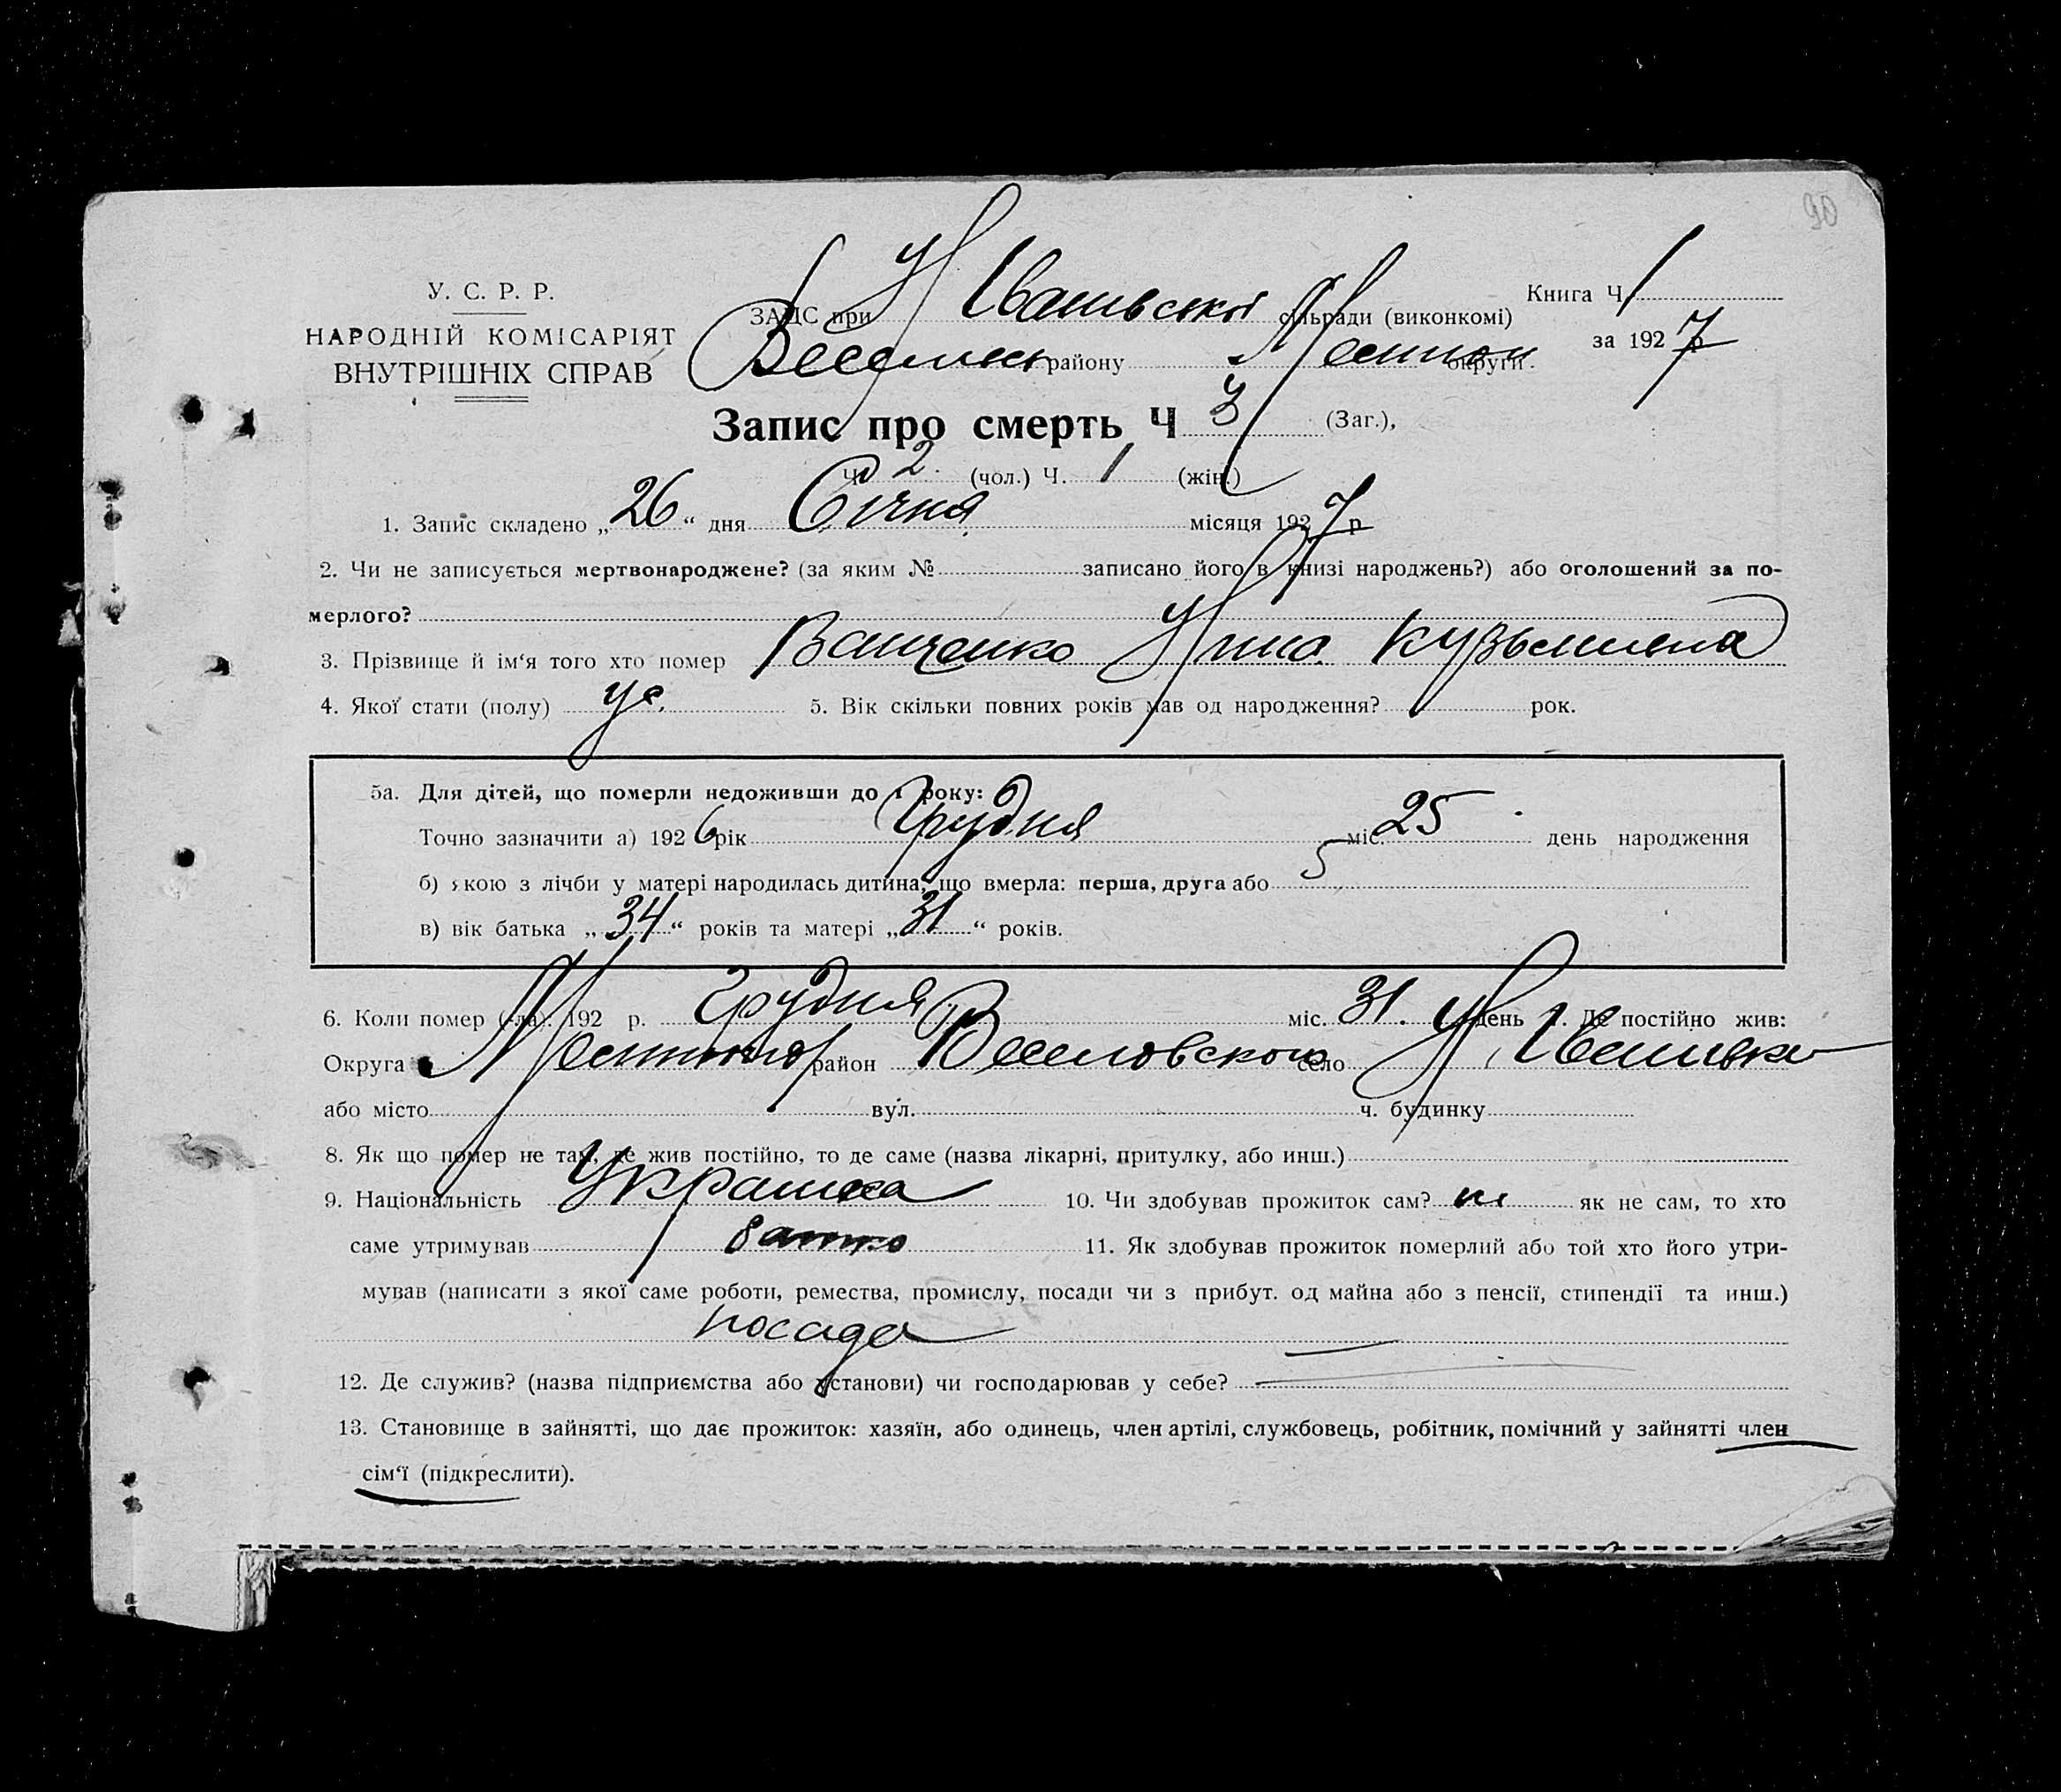 90
У. С. Р. Р.
НАРОДНІЙ КОМІСАРІЯТ
ВНУТРІШНІХ СПРАВ
ЗАГС при Н Іванівської сільради (виконкомі)
району округи.
Книга Ч. 1
за 1927 р
Запис про смерть Ч 3 (Заг.),
Ч 2 (чол.) Ч. 1 (жін.)
1. Запис складено „26“ дня Січня місяця 1927 р
2. Чи не записується мертвонароджене? (за яким № записано його в книзі народжень?) або оголошений за по-
мерлого?
3. Прізвище й ім‘я того хто помер Ванченко Нина Кузьмивна
4. Якої стати (полу) 5. Вік скільки повних років мав од народження? рок.
5а. Для дітей, що померли недоживши до 1 року:
Точно зазначити а) 1926 рік Грудня міс. 25 день народження
б) якою з лічби у матері народилась дитина, що вмерла: перша, друга або 5
в) вік батька „34“ років та матері „31“ років.
6. Коли помер (-ла). 192 р. Грудня міс. 31. день 7. Де постійно жив:
Округа район Веселовского село Н Іванивка
або місто вул. ч. будинку
8. Як що помер не там, де жив постійно, то де саме (назва лікарні, притулку, або инш.)
9. Національність Украинка 10. Чи здобував прожиток сам? ні як не сам, то хто
саме утримував батько 11. Як здобував прожиток померлий або той хто його утри-
мував (написати з якої саме роботи, ремества, промислу, посади чи з прибут. од майна або з пенсії, стипендії та инш.)
посада
12. Де служив? (назва підприємства або установи) чи господарював у себе?
13. Становище в зайнятті, що дає прожиток: хазяїн, або одинець, член артілі, службовець, робітник, помічний у зайнятті член
сім‘ї (підкреслити).